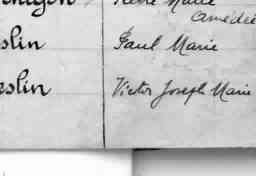 Pierre Marie
Amédée
slin Paul Marie
eslin Victor Joseph Marie